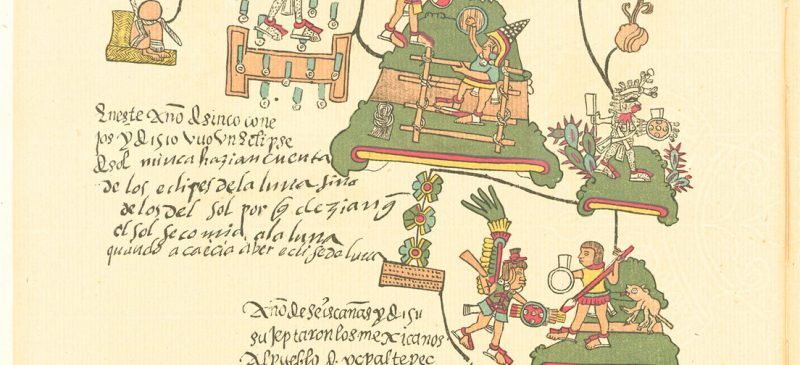 Eneste Año de sinco cone
jos y disio vuo un eclipse
de sol nunca hazian cuenta
de los eclipes de la luna sino
de los del sol por q̃ dezian q̃
el sol se comia a la luna
quando acaecia aber eclise de luna
Año de seis cañas y de su
sujeptaron los mexicanos
Al pueblo d. ycpaltepec